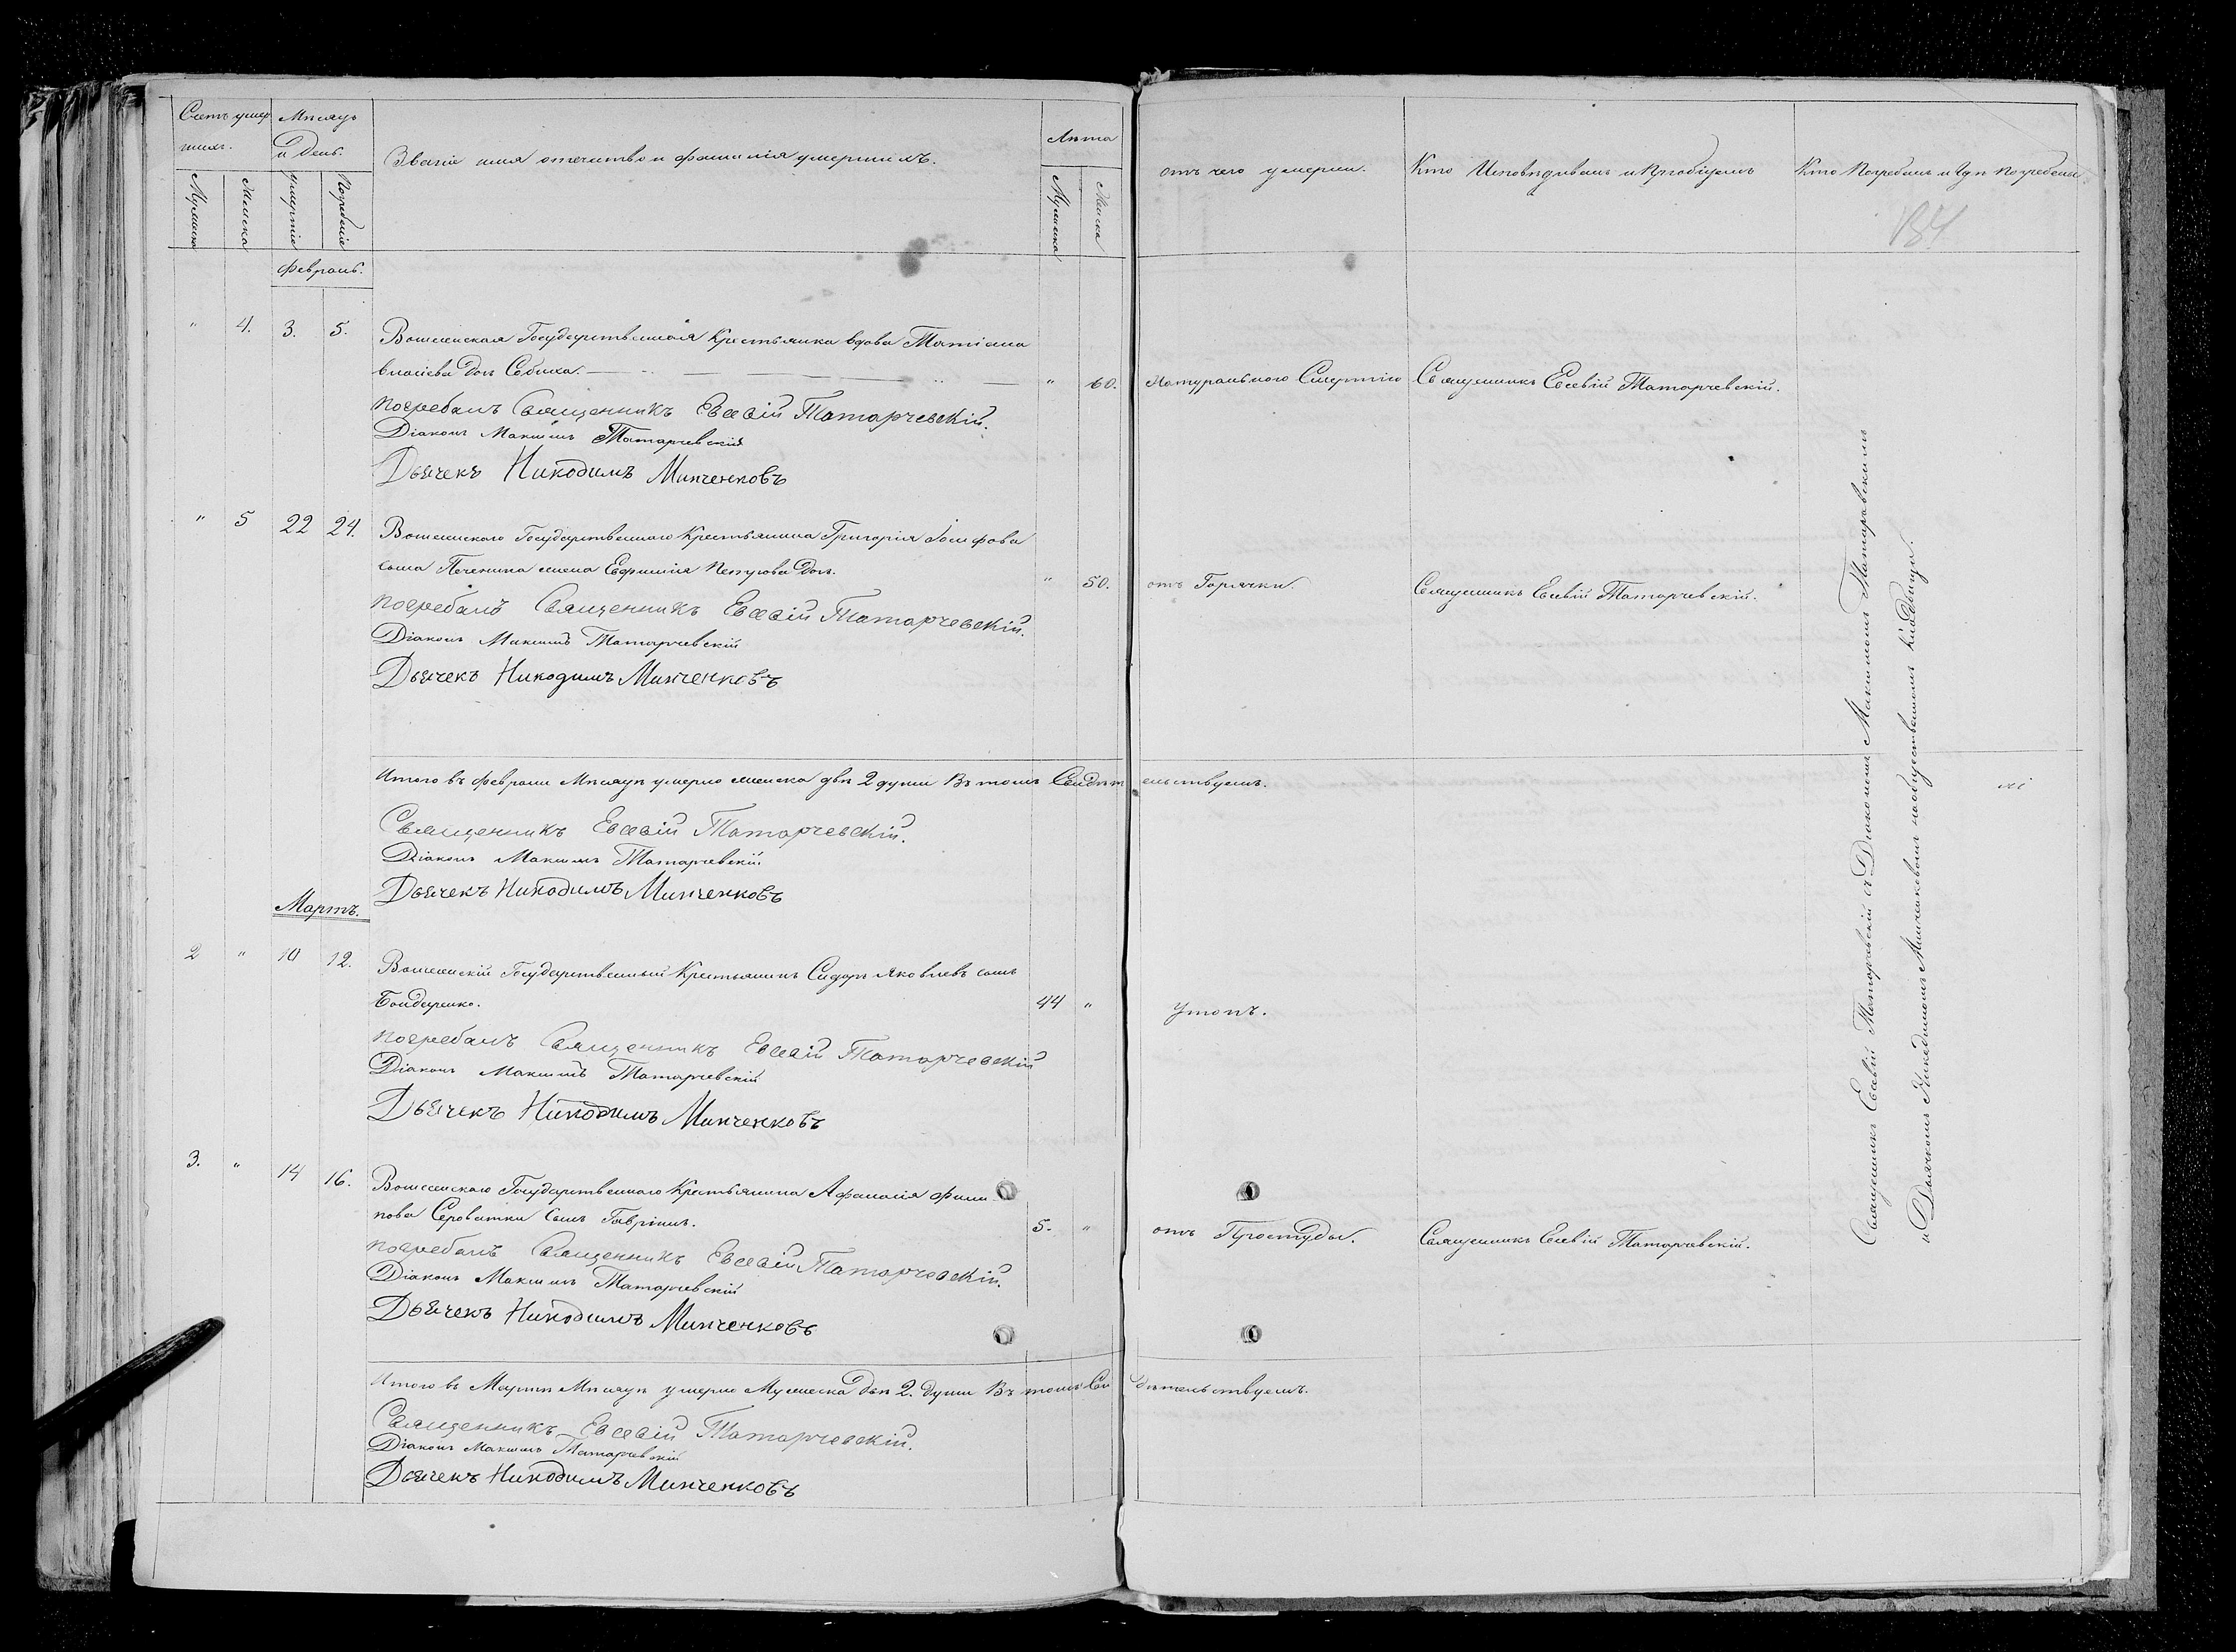 Счетъ умер
шихъ.
Мѣсяцъ
и День.
Званіе имя отечество и фамилія умершихъ.
Лѣта
отъ чего умерли.
Кто Исповѣдывалъ и Пріобщалъ
Кто Погребалъ и Гдѣ Погребены
Мужеска
Женска
умертія
Погребенія
Мужеска
Женска
184
Февраль.
" 4. 3. 5. Государственная Крестьянка вдова Татіана
Власіева Дочь " 60. Натуральною Смертію Священникъ Евсевій Татарчевскій.
Погребалъ Священникъ Евсевій Татарчевскій.
Діаконъ Максимъ Татарчевскій
Дьячекъ Никодимъ Минченковъ
" 5 22 24. Государственнаго Крестьянина Григорія Іосифова
сына жена Евфимія Петрова Дочь. " 50. отъ Горячки. Священникъ Евсевій Татарчевскій.
Погребалъ Священникъ Евсевій Татарчевскій.
Діаконъ Максимъ Татарчевскій
Дьячекъ Никодимъ Минченковъ
Итого въ Февралѣ Мѣсяцѣ умерло женска двѣ 2 души Въ томъ Свидѣтельствуемъ.
Священникъ Евсевій Татарчевскій.
Діаконъ Максимъ Татарчевскій
Дьячекъ Никодимъ Минченковъ
Мартъ.
2 " 10 12. Государственный Крестьянинъ Сидоръ Яковлевъ сынъ
Бондаренко. 44 " Утопъ.
Погребалъ Священникъ Евсевій Татарчевскій
Діаконъ Максимъ Татарчевскій
Дьячекъ Никодимъ Минченковъ
3. " 14 16. Государственнаго Крестьянина Афанасія Филип
пова Сероватки Сынъ Гавріилъ. 5. " отъ Простуды. Священникъ Евсевій Татарчевскій.
Погребалъ Священникъ Евсевій Татарчевскій.
Діаконъ Максимъ Татарчевскій
Дьячекъ Никодимъ Минченковъ
Итого въ Мартѣ Мѣсяцѣ умерло Мужеска двѣ 2. Души Въ томъ Свидѣтельствуемъ.
Священникъ Евсевій Татарчевскій.
Діаконъ Максимъ Татарчевскій
Дьячекъ Никодимъ Минченковъ
Священникъ Евсевій Татарчевскій съ Діакономъ Максимомъ Татарчевскимъ
и Дьячкомъ Никодимомъ Минченковымъ на общественномъ кладбищѣ.